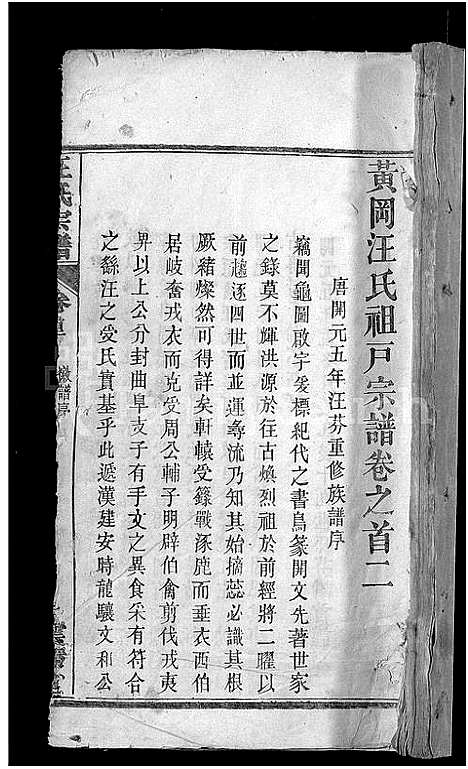 黃岡汪氏祖戶宗譜卷之首二
唐開元五年汪芬重修族譜序
竊聞龜圖啟字爰標紀代之書鳥篆開文先著世家
之錄莫不輝洪源於往古煥烈祖於前經將二曜以
前趨逐四世而並運尋流乃知其始摘蕊必識其根
厥緒燦然可得詳矣軒轅受籙戰涿鹿而垂衣西伯
居岐奮戎衣而克受周公輔子明辟伯禽剪伐戎夷
畀以上公分封曲阜支子有手文之異食采有符合
之繇汪之受氏實基乎此遞漢建安時龍驤文和公
汪氏宗譜
卷首
譜序